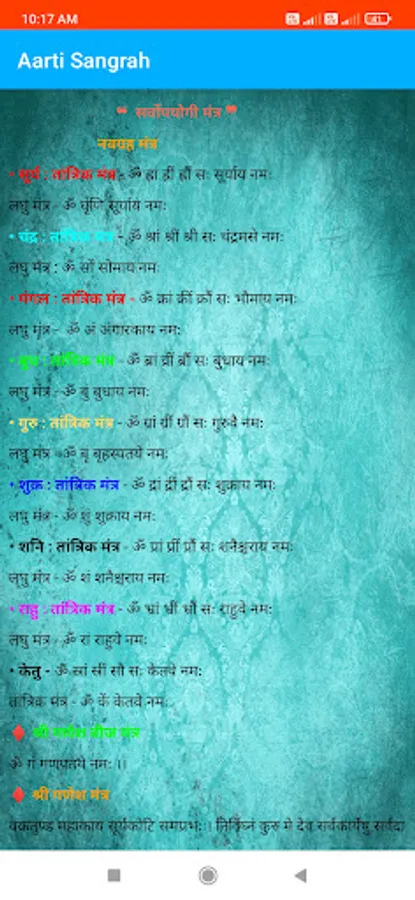 10:17 AM
Aarti Sangrah
❝ सर्वोपयोगी मंत्र ❞
नवग्रह मंत्र
• सूर्य : तांत्रिक मंत्र - ॐ ह्रां ह्रीं ह्रौं सः सूर्याय नमः
लघु मंत्र - ॐ घृणि सूर्याय नमः
• चंद्र : तांत्रिक मंत्र - ॐ श्रां श्रीं श्रौं सः चंद्रमसे नमः
लघु मंत्र : ॐ सों सोमाय नमः
• मंगल : तांत्रिक मंत्र - ॐ क्रां क्रीं क्रौं सः भौमाय नमः
लघु मंत्र - ॐ अं अंगारकाय नमः
• बुध : तांत्रिक मंत्र - ॐ ब्रां ब्रीं ब्रौं सः बुधाय नमः
लघु मंत्र - ॐ बुं बुधाय नमः
• गुरु : तांत्रिक मंत्र - ॐ ग्रां ग्रीं ग्रौं सः गुरुवै नमः
लघु मंत्र - ॐ बृ बृहस्पतये नमः
• शुक्र : तांत्रिक मंत्र - ॐ द्रां द्रीं द्रौं सः शुक्राय नमः
लघु मंत्र - ॐ शुं शुक्राय नमः
• शनि : तांत्रिक मंत्र - ॐ प्रां प्रीं प्रौं सः शनैश्चराय नमः
लघु मंत्र - ॐ शं शनैश्चराय नमः
• राहु : तांत्रिक मंत्र - ॐ भ्रां भ्रीं भ्रौं सः राहुवे नमः
लघु मंत्र - ॐ रां राहुवे नमः
• केतु - ॐ स्रां स्रीं स्रौं सः केतवे नमः
तांत्रिक मंत्र - ॐ कें केतवे नमः
श्री गणेश बीज मंत्र
ॐ गं गणपतये नमः ।।
श्री गणेश मंत्र
वक्रतुण्ड महाकाय सूर्यकोटि समप्रभः । निर्विघ्नं कुरु मे देव सर्वकार्येषु सर्वदा